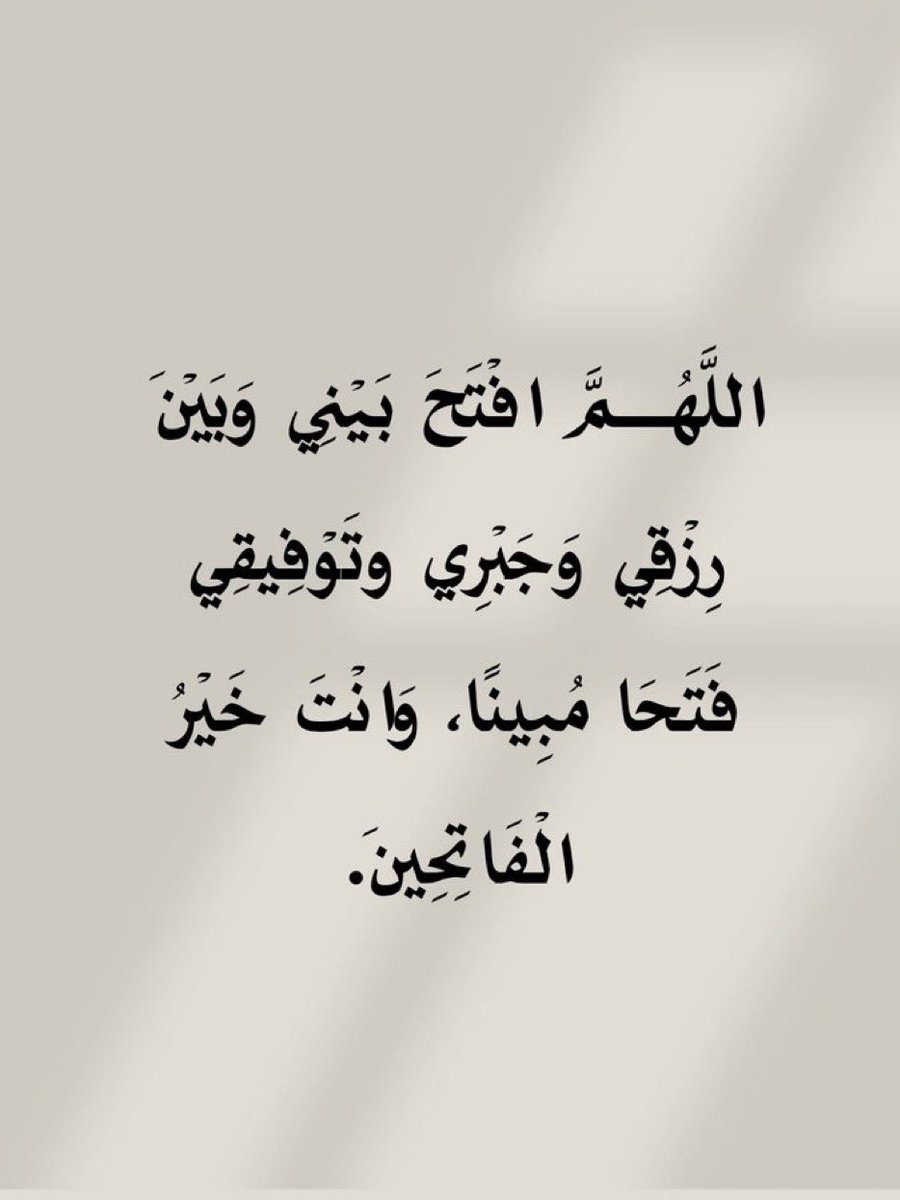 اللَّهُـمَّ افْتَحَ بَيْنِي وَبَيْنَ
رِزْقِي وَجَبْرِي وتَوْفِيقِي
فَتَحَا مُبِينًا، وَانْتَ خَيْرُ
الْفَاتِحِينَ.